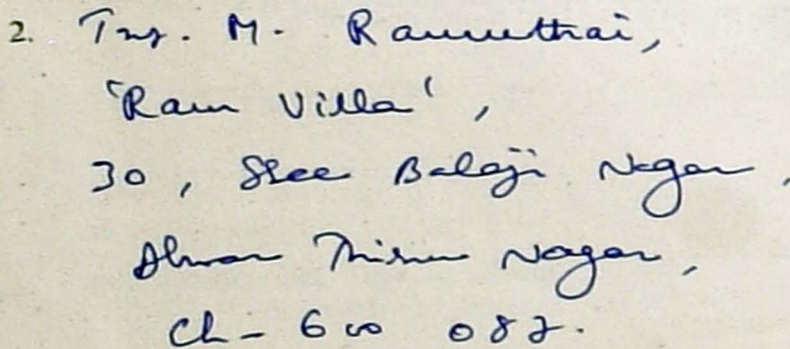 2. Tmy. M. Ramuthai,
'Ram Villa',
30, Sree Balaji Nagar,
Alwar Thiru Nagar,
Ch - 600 087.